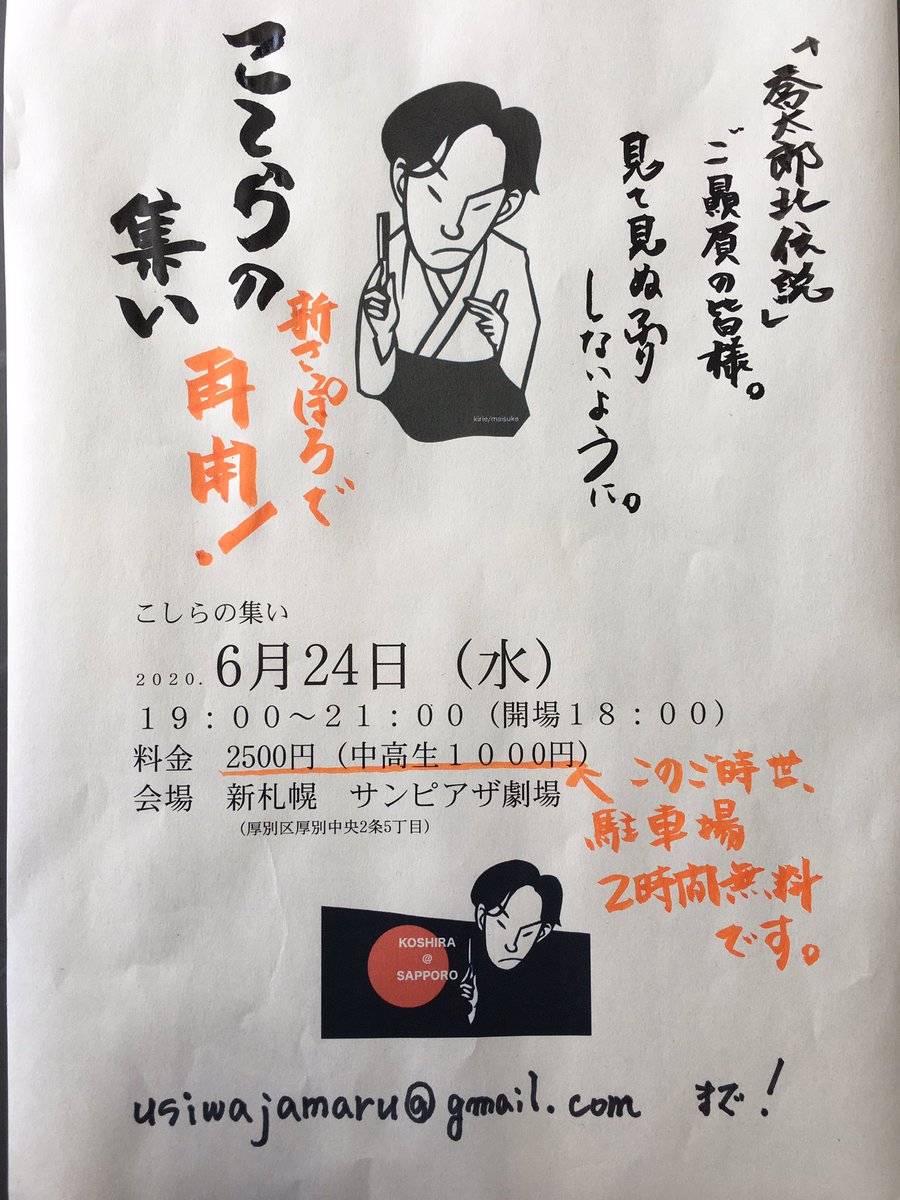 「喬太郎北伝説」
ご贔屓の皆様。
見て見ぬふり
しないように。
こしらの
集い
新さぽろで
再開!
kirie/maisuke
こしらの集い
2020. 6月24日（水）
19：00〜21：00（開場18：00）
料金　2500円（中高生1000円）
会場　新札幌　サンピアザ劇場
（厚別区厚別中央2条5丁目）
このご時世、
駐車場
2時間無料
です。
KOSHIRA
@
SAPPORO
usiwajamaru@gmail.com まで!